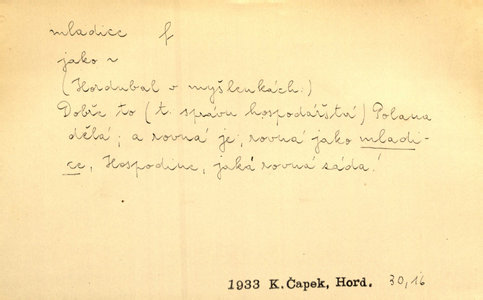 mladice f
jako ~
(Hordubal v myšlenkách:)
Dobře to (t. správu hospodářství) Polana
dělá; a rovná je, rovná jako mladi-
ce, Hospodine, jaká rovná záda!
1933 K.Čapek, Hord. 30,16